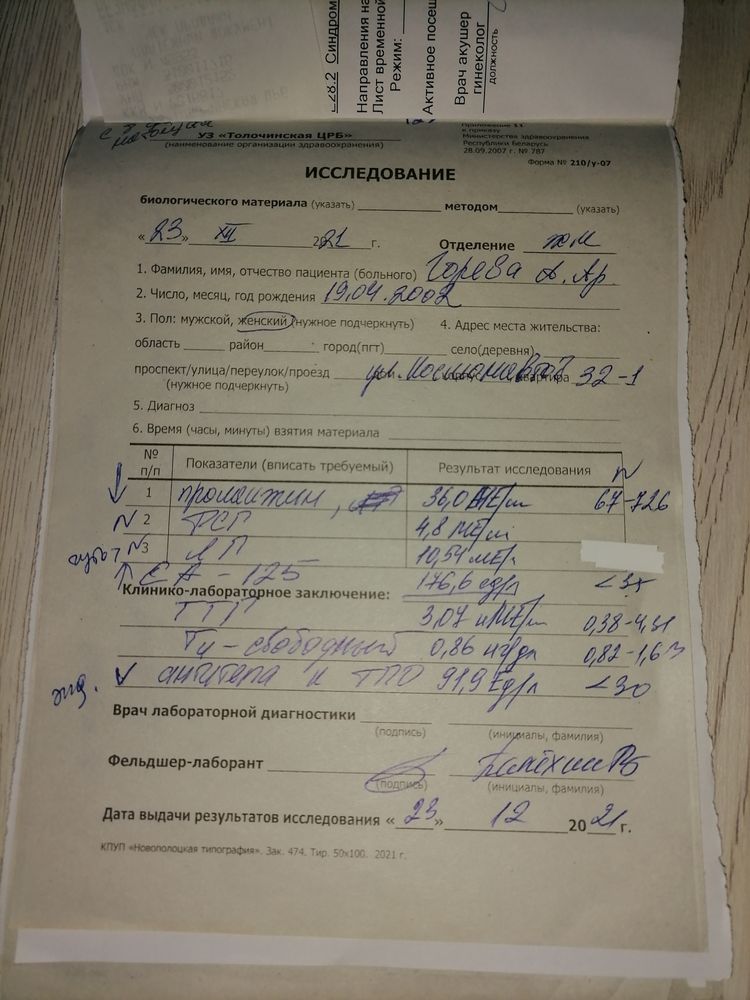 E28.2 Синдром
Направления на
Лист временной
Режим:
Активное посещ
Врач акушер
гинеколог
должность
Приложение 11
к приказу
Министерства здравоохранения
Республики Беларусь
28.09.2007 г. № 787
УЗ «Толочинская ЦРБ»
(наименование организации здравоохранения)
Форма № 210/у-07
ИССЛЕДОВАНИЕ
биологического материала (указать) методом (указать)
«23» XII 2021 г. Отделение
1. Фамилия, имя, отчество пациента (больного) Горева А. Ар.
2. Число, месяц, год рождения 19.04.2002
3. Пол: мужской, женский (нужное подчеркнуть) 4. Адрес места жительства:
область район город(пгт) село(деревня)
проспект/улица/переулок/проезд ул. квартира 32-1
(нужное подчеркнуть)
5. Диагноз
6. Время (часы, минуты) взятия материала
№ п/п Показатели (вписать требуемый) Результат исследования N
↓ 1 пролактин, 36,0 МЕ/л 67-726
N 2 ФСГ 4,8 МЕ/л
N 3 ЛГ 10,54 МЕ/л
↑ СА-125 176,6 ед/л <35
Клинико-лабораторное заключение:
ТТГ 3,07 мМЕ/л 0,38-4,31
Т4-свободный 0,86 нг/дл 0,82-1,63
энд. V антитела к ТПО 91,9 Ед/л <30
Врач лабораторной диагностики
(подпись) (инициалы, фамилия)
Фельдшер-лаборант
(подпись) (инициалы, фамилия)
Дата выдачи результатов исследования «23» 12 2021 г.
КПУП «Новополоцкая типография». Зак. 474. Тир. 50х100. 2021 г.